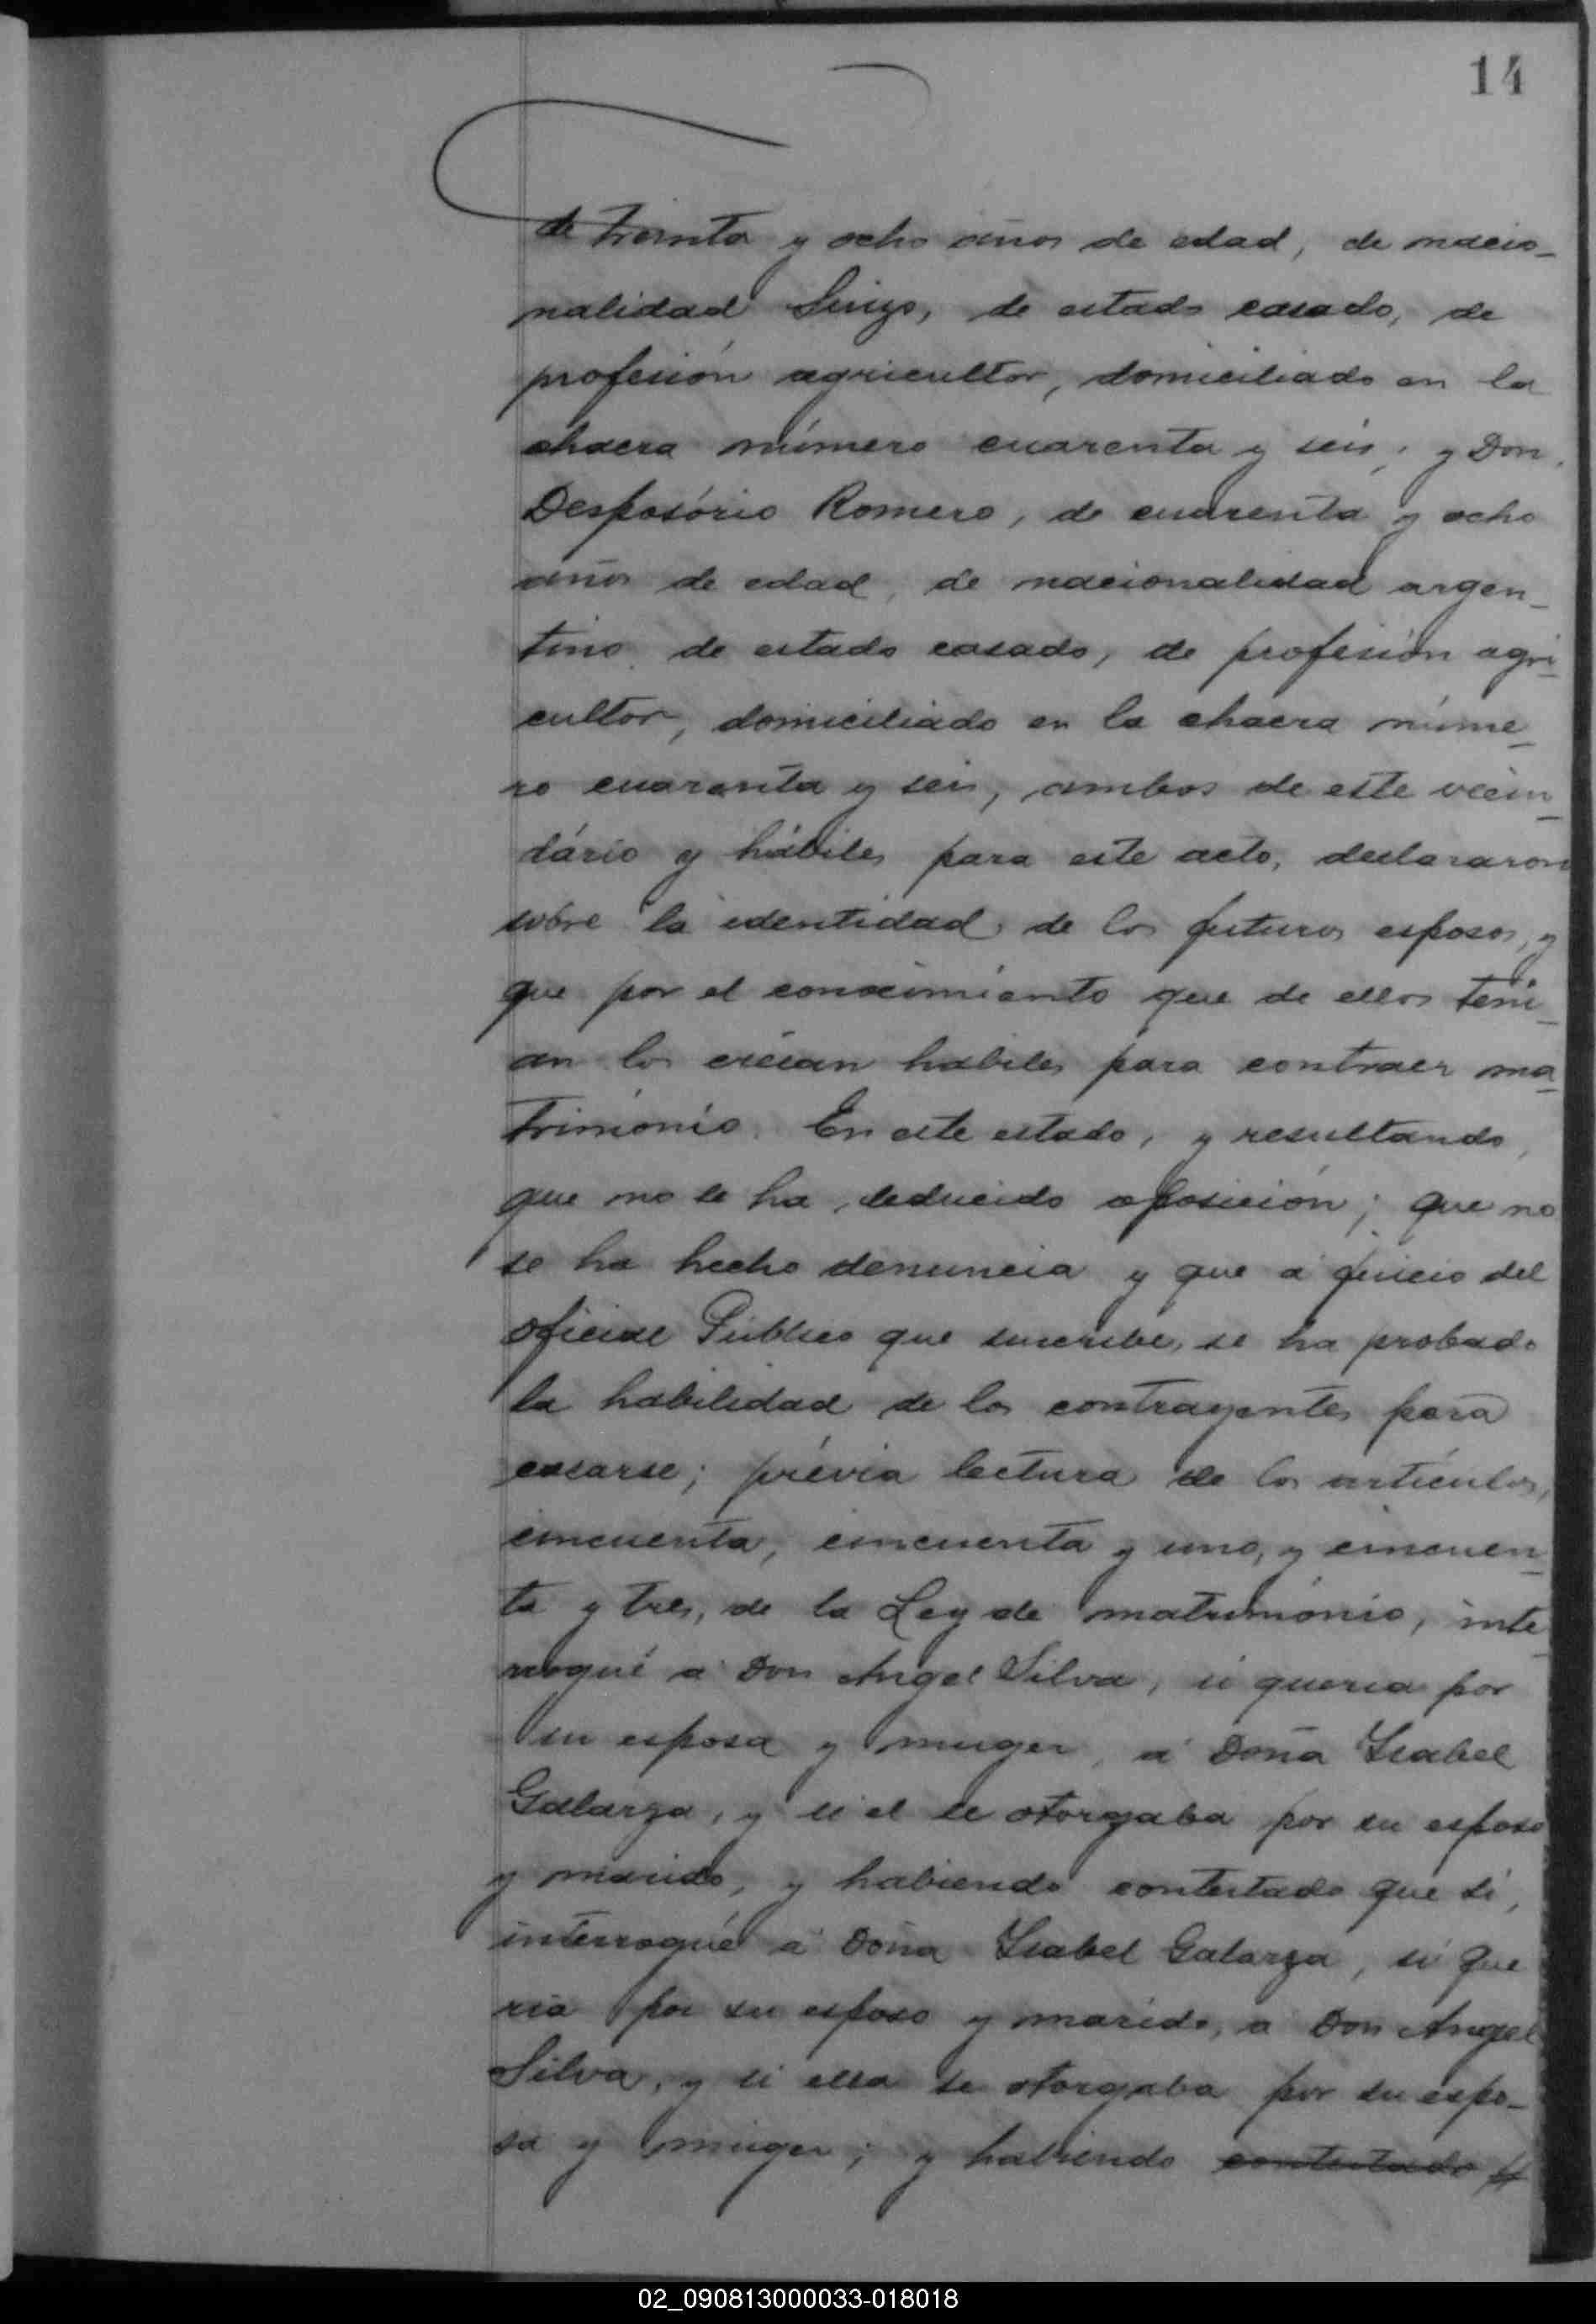 14
de treinta y ocho años de edad, de nacio-
nalidad Suizo, de estado casado, de
profesión agricultor, domiciliado en la
chacra número cuarenta y seis; y Don
Desposório Romero, de cuarenta y ocho
años de edad, de nacionalidad argen-
tino de estado casado, de profesión agri-
cultor, domiciliado en la chacra núme-
ro cuarenta y seis, ambos de este vecin-
dário y hábiles para este acto, declararon
sobre la identidad de los futuros esposos, y
que por el conocimiento que de ellos tení-
an los creían habiles para contraer ma-
trimónio. En este estado, y resultando,
que no se ha deducido oposición; que no
se ha hecho denuncia y que á juicio del
oficial Público que suscribe, se ha probado
la habilidad de los contrayentes para
casarse; prévia lectura de los artículos,
cincuenta, cincuenta y uno, y cincuen-
ta y tres, de la Ley de matrimónio, inte-
rrogué a Don Angel Silva, si queria por
su esposa y muger, á Doña Isabel
Galarza, y si el se otorgaba por su esposo
y marido, y habiendo contestado que sí,
interrogué á Doña Isabel Galarza, si que
ria por su esposo y marido, a Don Angel
Silva, y si ella se otorgaba por su espo-
sa y muger; y habiendo contestado
02_090813000033-018018